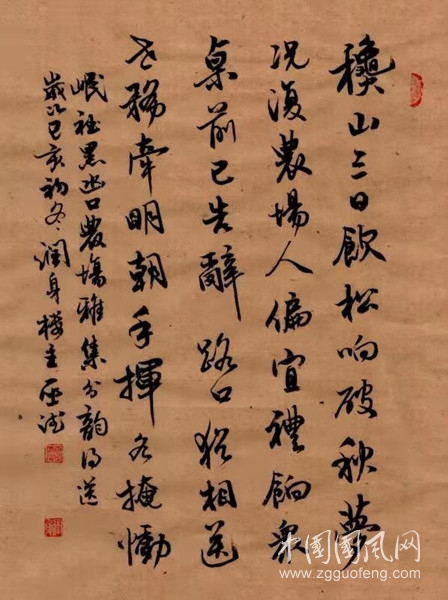 山三日飲松响破秋夢
况復農場人偏宜禮餉衆
桌前已告辭路口猶相送
世務牽明朝手揮各掩慟
岷社黑口農塲雅集分韵得送
歲次己亥初冬潤身樓主
中国国风网
www.zgguofeng.com